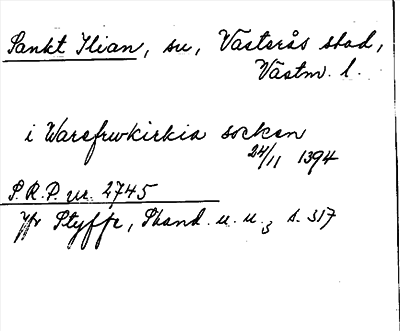 Sankt Ilian, su, Västerås stad,
Västm. l.
i Warefrwkirkia socken
24/11 1394
S.R.P. nr. 2745
Jfr Styffe, Skand. u. u.3 s. 317